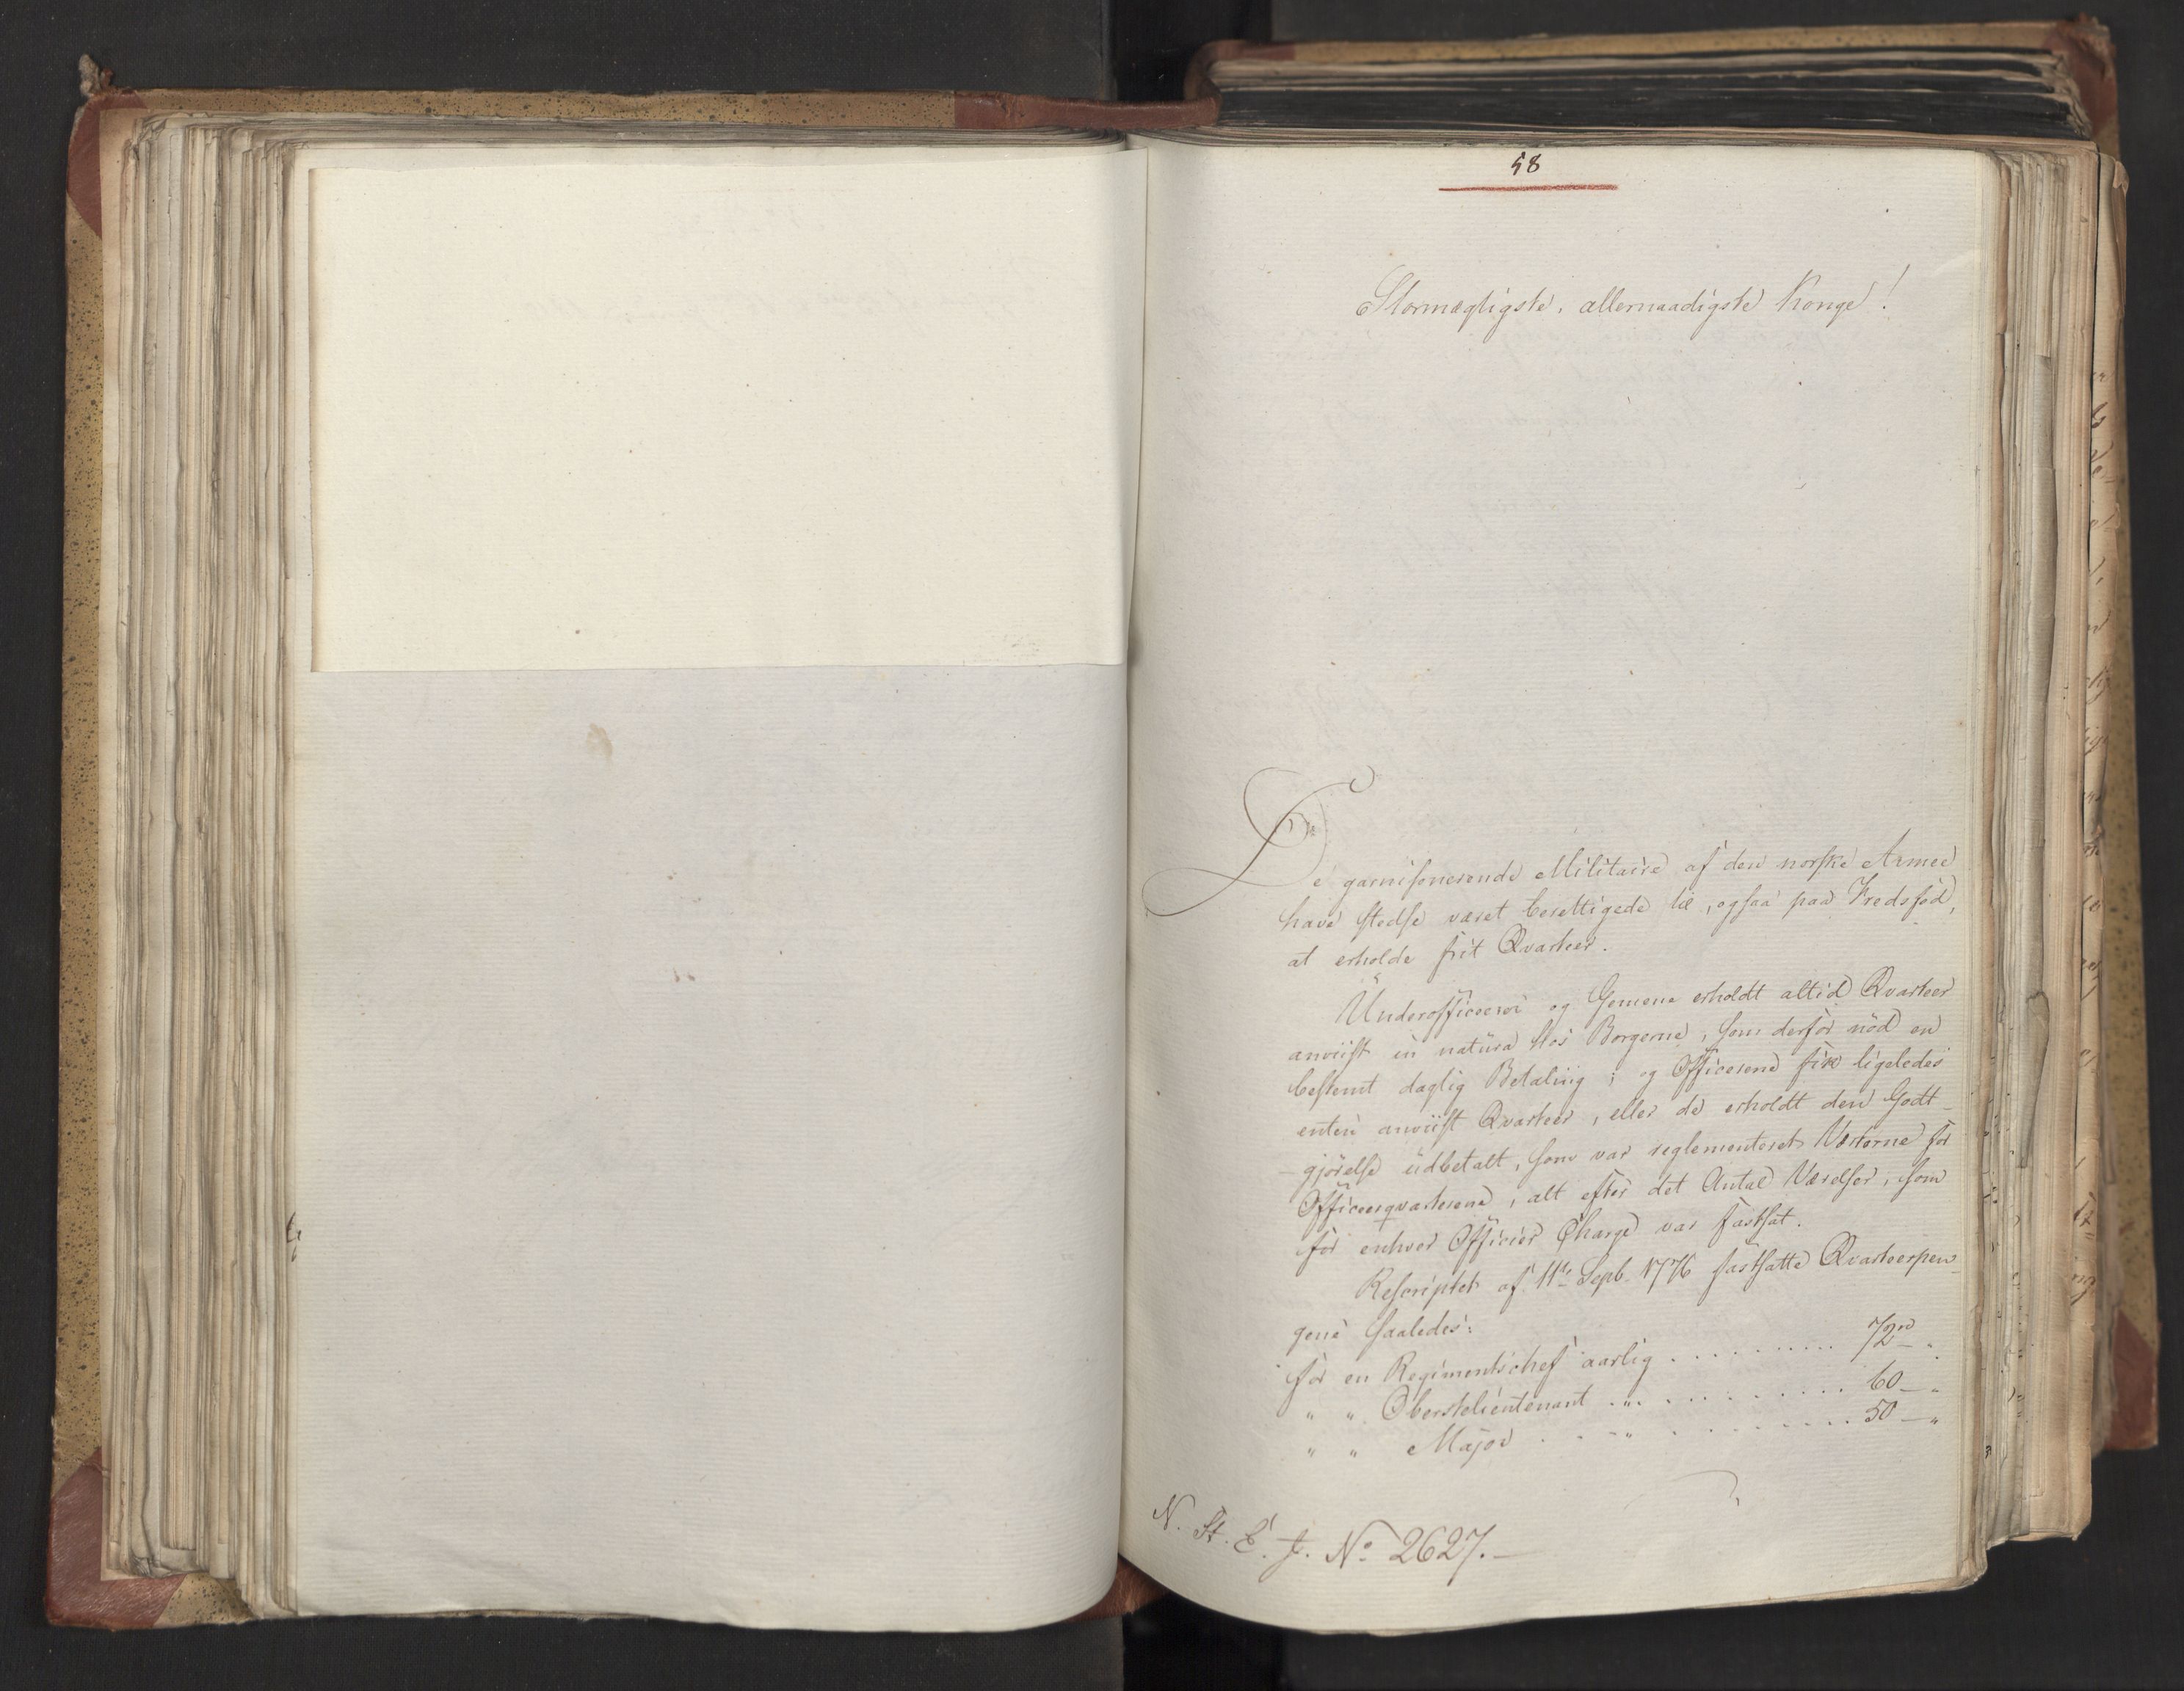 58
Stormægtigste, allernaadigste Konge!
De garnisonerende Militaire af den norske Armee
have stedse været berettigede til, ogsaa paa Fredsfod,
at erholde frit Qvarteer.
Underofficerer og Gemene erholdt altid Qvarteer
anviist in natura hos Borgerne, som derfor nød en
bestemt daglig Betaling; og Officerene fik ligeledes
enten anviist Qvarteer, eller de erholdt den Godt-
-gjørelse udbetalt, som var reglementeret Værterne for
Officeerqvarterene, alt efter det Antal Værelser, som
for enhver Officier Charge var fastsat.
Rescriptet af 11te Septb. 1776 fastsatte Qvarteerpen-
gene saaledes:
for en Regimentschef aarlig .......... 72rd „
„ „ Oberstelieutenant ..„.......... 60 – „
„ „ Major . . . „ . ....... 50 – „
N. St. E. J. No 2627.–